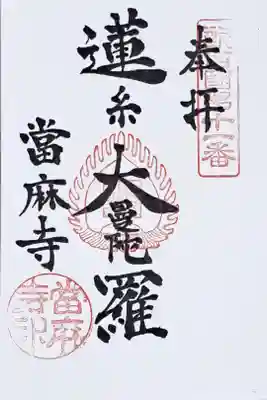 新西国第十一番
奉拝
蓮糸大曼陀羅
當麻寺
當麻寺印